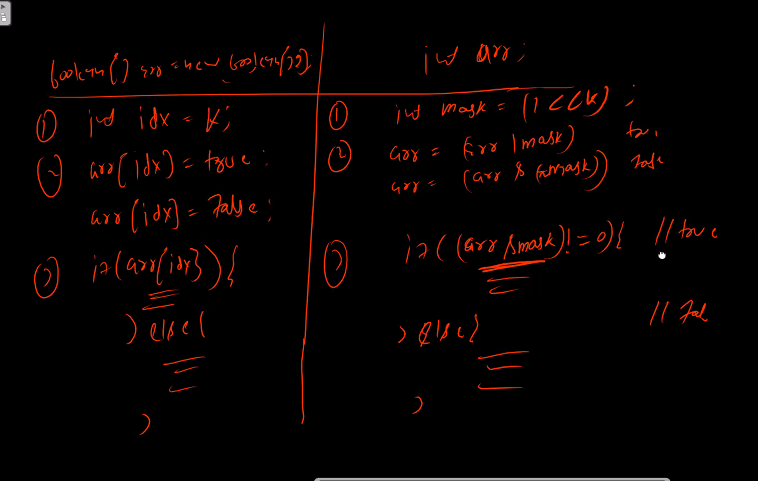 boolean[] arr = new boolean[32];
① int idx = k;
② arr[idx] = true;
arr[idx] = false;
③ if(arr[idx]){
} else {
}
int arr;
① int mask = (1<<k);
② arr = (arr | mask) true
arr = (arr & (~mask)) false
③ if((arr & mask)!=0){ // true
} else { // Fal
}